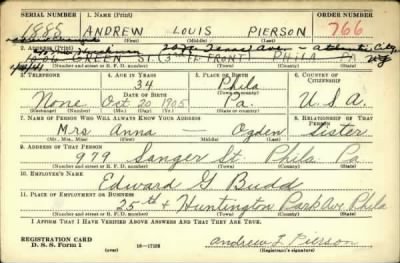 SERIAL NUMBER 1. NAME (Print) ORDER NUMBER
1885 ANDREW LOUIS PIERSON 766
(First) (Middle) (Last)
2. ADDRESS (Print) Ave - Atlantic City
GREEN ST. (3 FL FRONT) PHILA PA NJ
(Number and street or R. F. D. number) (Town) (County) (State)
3. TELEPHONE 4. AGE IN YEARS 5. PLACE OF BIRTH 6. COUNTRY OF CITIZENSHIP
34 Phila
None Oct. 20 1905 Pa. U.S.A.
7. NAME OF PERSON WHO WILL ALWAYS KNOW YOUR ADDRESS 8. RELATIONSHIP OF THAT PERSON
Mrs Anna — Ogden Sister
(Mr., Mrs., Miss) (First) (Middle) (Last)
9. ADDRESS OF THAT PERSON
979 Sanger St. Phila. Pa
(Number and street or R. F. D. number) (Town) (County) (State)
10. EMPLOYER'S NAME
Edward G Budd
11. PLACE OF EMPLOYMENT OR BUSINESS
25th & Huntington Park Av Phila
(Number and street or R. F. D. number) (Town) (County) (State)
I AFFIRM THAT I HAVE VERIFIED ABOVE ANSWERS AND THAT THEY ARE TRUE.
REGISTRATION CARD
D. S. S. Form 1 16—17105 Andrew L Pierson
(Registrant's signature)